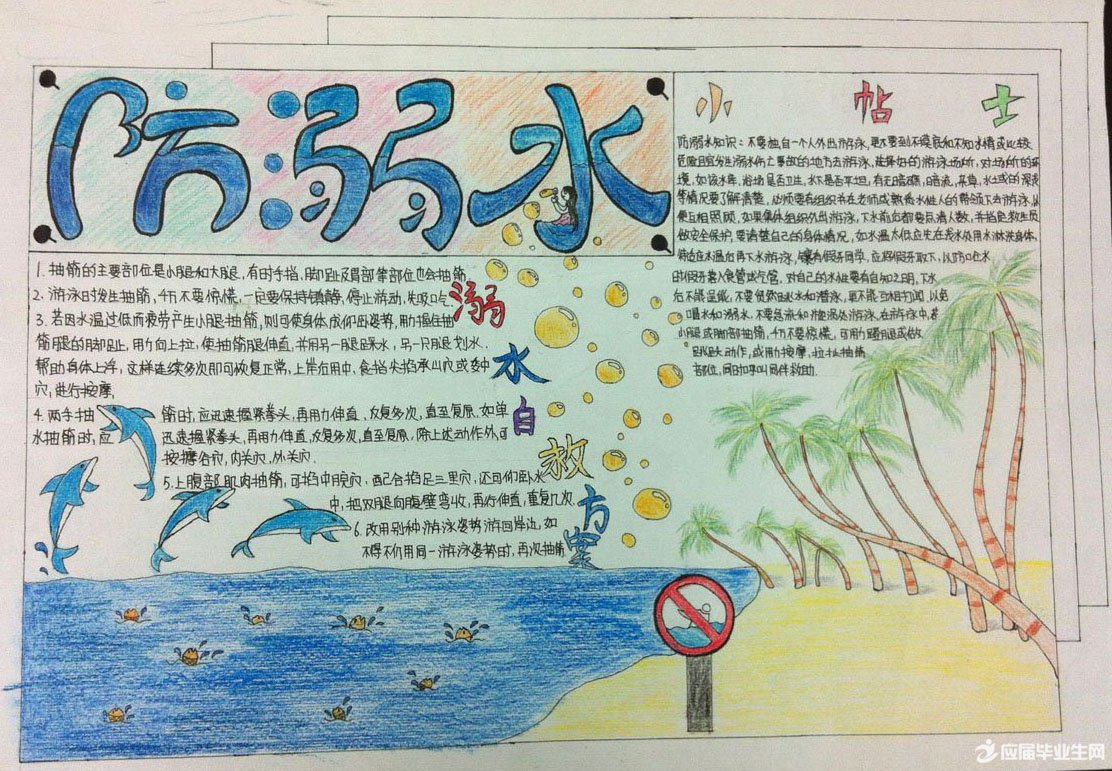 防溺水
小帖士
防溺水知识：不要独自一个人外出游泳，更不要到不摸底和不知水情或比较
危险且宜发生溺水伤亡事故的地方去游泳，选择好的游泳场所，对场所的环
境，如该水库，浴场是否卫生，水下是否平坦，有无暗礁，暗流，杂草，水域的深浅
等情况要了解清楚，必须要有组织并在老师或熟悉水性人的带领下去游泳，以
便互相照顾，如果集体组织外出游泳，下水前后都要点清人数，并指定救生员
做安全保护，要清楚自己的身体情况，如水温太低应先在浅水处用水淋洗身体，
待适应水温后再下水游泳，镶有假牙同学，应将假牙取下，以防呛水
时假牙落入食管或气管，对自己的水性要有自知之明，下水
后不能逞能，不要贸然跳水和潜泳，更不能互相打闹，以免
喝水和溺水，不要急流和漩涡处游泳，在游泳中，若
小腿或脚部抽筋，千万不要惊慌，可用力蹬腿或做
跳跃动作，或用力按摩，拉扯抽筋
部位，同时呼叫同伴救助.
1. 抽筋的主要部位是小腿和大腿，有时手指，脚趾及胃部等部位也会抽筋
2. 游泳时发生抽筋，千万不要惊慌，一定要保持镇静，停止游动，先吸口气
3. 若因水温过低而疲劳产生小腿抽筋，则可使身体成仰卧姿势，用力握住抽
筋腿的脚趾，用力向上拉，使抽筋腿伸直，并用另一腿踩水，另一只腿划水，
帮助身体上浮，这样连续多次即可恢复正常，上岸后用中，食指尖掐承山穴或委中
穴，进行按摩，
4. 两手抽筋时，应迅速握紧拳头，再用力伸直，反复多次，直至复原，如单
水抽筋时，应迅速握紧拳头，再用力伸直，反复多次，直至复原，除上述动作外，可
按摩合穴，内关穴，外关穴.
5. 上腹部肌肉抽筋，可掐中脘穴，配合掐足三里穴，还可仰卧水
中，把双腿向腹壁弯收，再行伸直，重复几次，
6. 改用别种游泳姿势游回岸边，如
不得不仍用同一游泳姿势时，再次抽筋
溺水自救方案
应届毕业生网